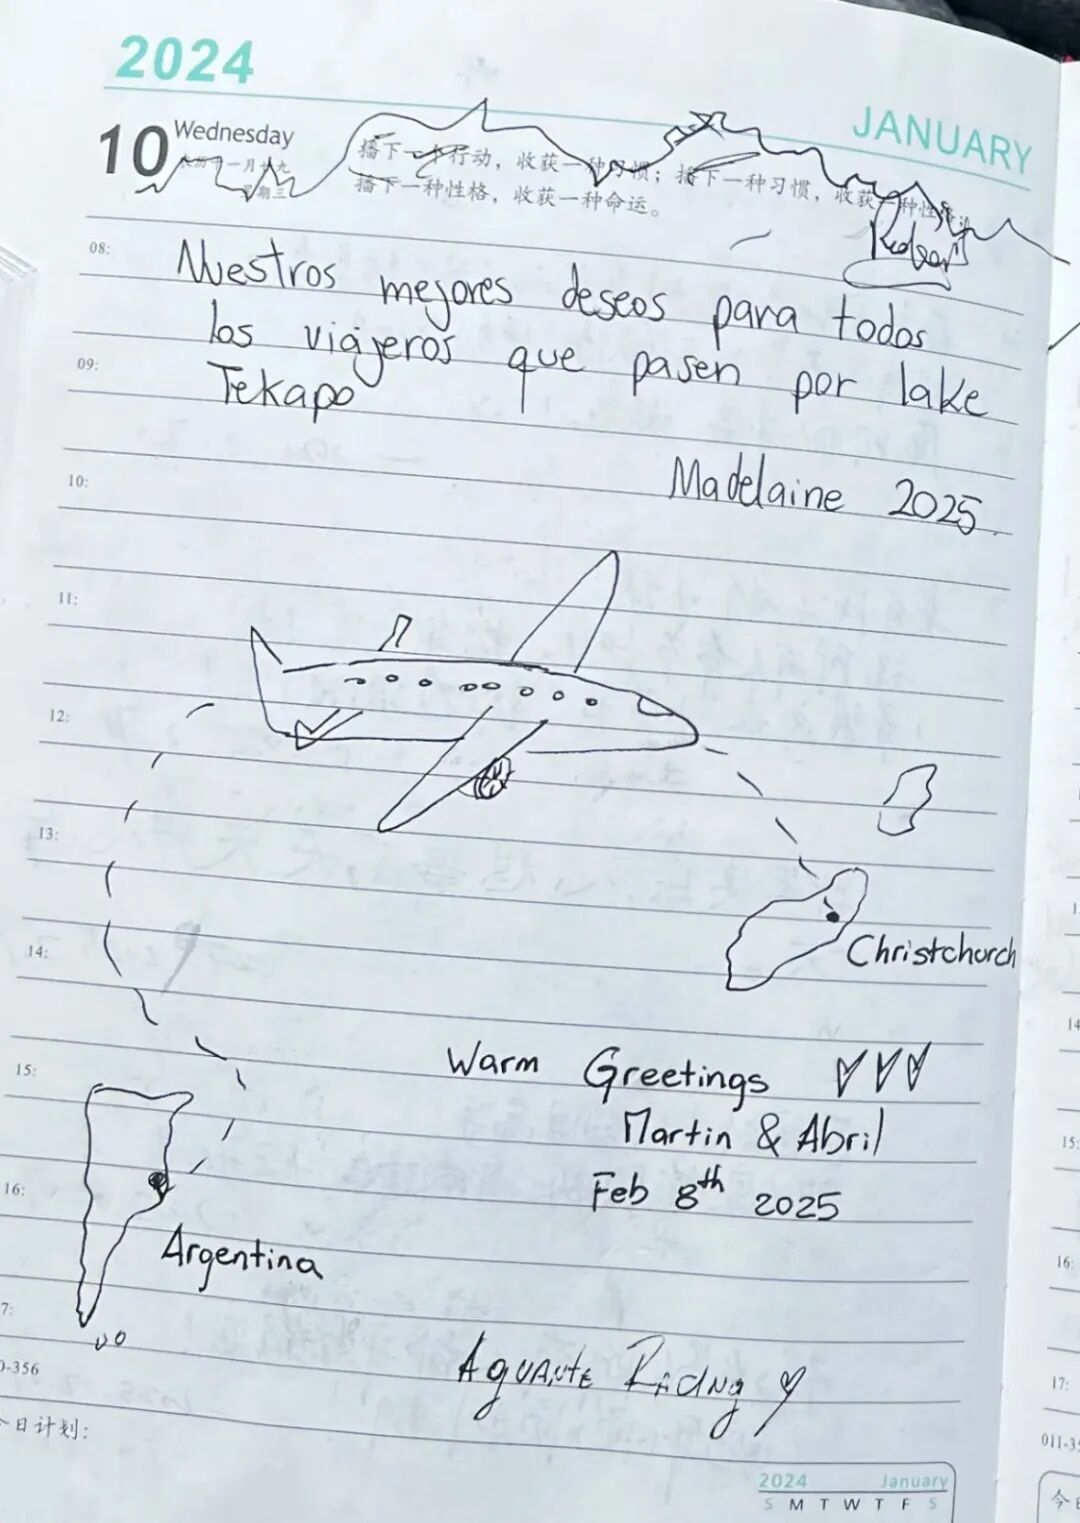 2024
JANUARY
10 Wednesday
播下一个行动，收获一种习惯；播下一种习惯，收获一种性格；
播下一种性格，收获一种命运。
08:
Nuestros mejores deseos para todos
los viajeros que pasen por lake
09:
Tekapo
10:
Madelaine 2025
11:
12:
13:
Christchurch
14:
Warm Greetings
15:
Martin & Abril
Feb 8th 2025
16:
Argentina
7:
Aguante
0-356
今日计划:
2024 January
S M T W T F S
14
15:
16:
17:
011-35
今